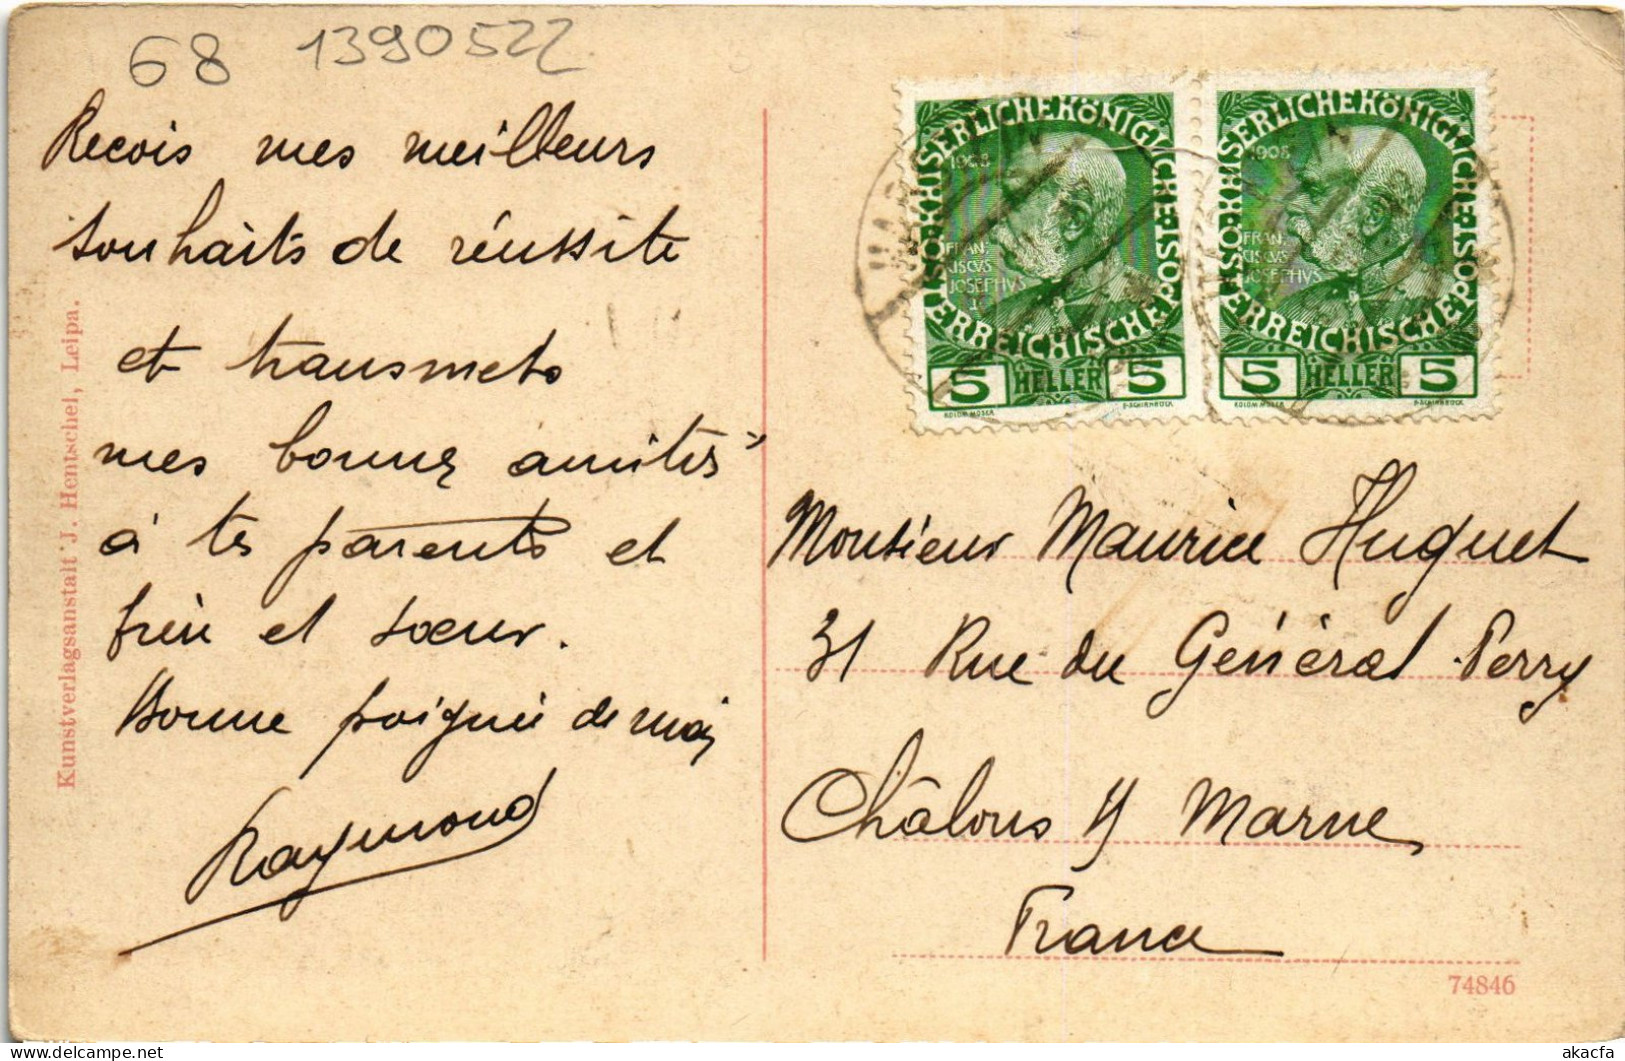 68 1390522
Reçois mes meilleurs
souhaits de réussite
et transmets
mes bonnes amitiés
à tes parents et
frère et sœur.
Bonne poignée de main
Raymond
Kunstverlagsanstalt J. Hentschel, Leipa.
KAISERLICHE KÖNIGLICHE ÖSTERREICHISCHE POST
1908
FRAN
CISCVS
JOSEPHVS
I
5 HELLER 5
KOLOM MOSER
F. SCHIRNBÖCK
KAISERLICHE KÖNIGLICHE ÖSTERREICHISCHE POST
1908
FRAN
CISCVS
JOSEPHVS
I
5 HELLER 5
KOLOM MOSER
F. SCHIRNBÖCK
Monsieur Maurice Huguet
31 Rue du Général Perry
Châlons s/ Marne
France
74846
akacfa